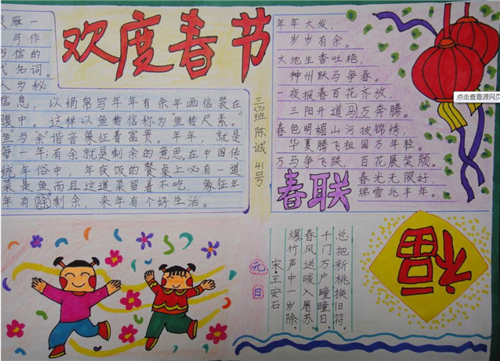 欢度春节
雁一
可作
与信的
名词。
人为秘
信息，以绢帛写年年有余年画信装在
腹中。这样以鱼传信称为“鱼传尺素”。
鱼与“余”谐音象征着富贵。年年，就是
每一年；有余就是剩余的意思，在中国传
统年俗中，年夜饭的餐桌上必有一道
菜是鱼而且这道菜留着不吃，
年有剩余，来年有个好生活。
陈诚 41号
年年大发，
岁岁有余。
大地生香吐艳，
神州跃马争春。
夜报春百花齐放，
三阳开道马万奔腾。
春色明媚山河披锦绣，
华夏腾飞祖国万年轻。
万马争飞跃，百花展笑颜。
春光无限好，
瑞雪兆丰年。
春联
点击查看源网页
元日
宋·王安石
爆竹声中一岁除，
春风送暖入屠苏。
千门万户曈曈日，
总把新桃换旧符。
福